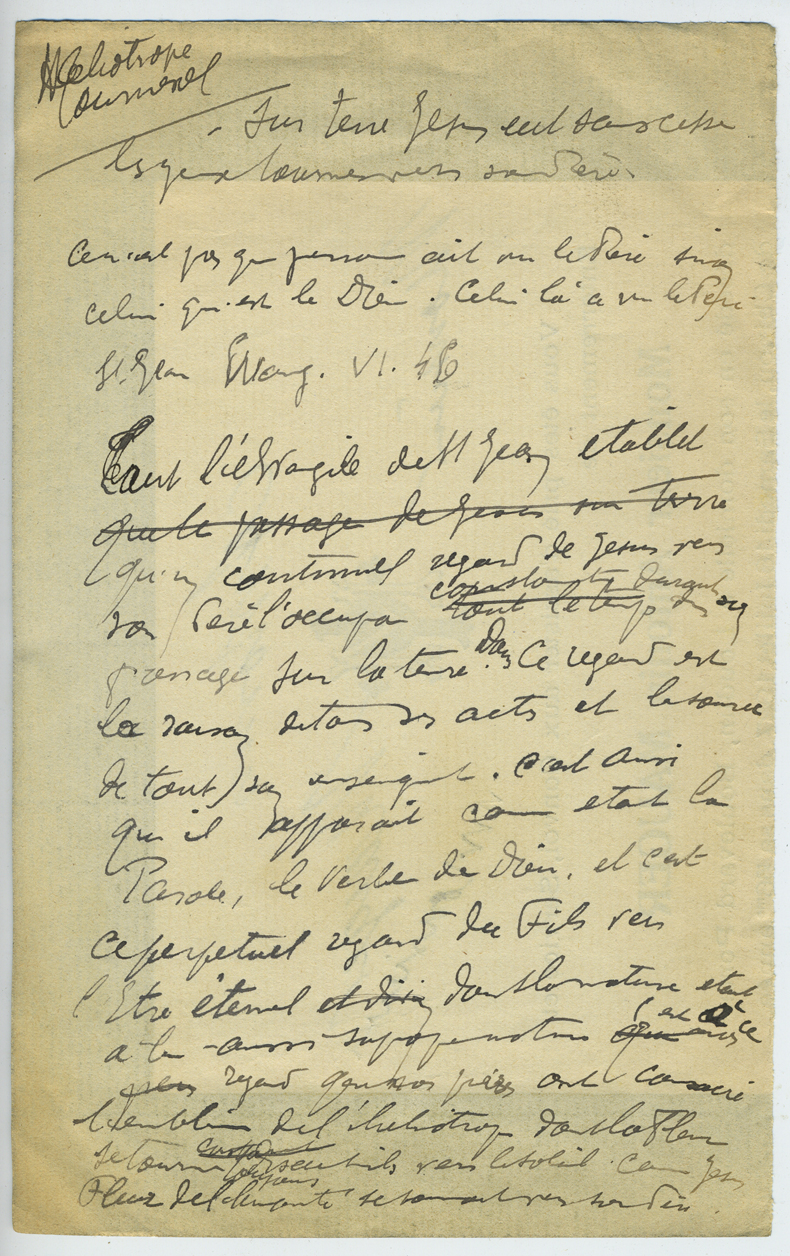 Heliotrope
Tournesol
- Sur terre Jesus eut sans cesse
les yeux tournes vers son Père.
Ce n'est pas que personne ait vu le Père sinon
celui qui est le Dieu. Celui là a vu le Père
St Jean Evang. VI. 46
Tout l'éEvagile de St Jean etablit
que le passage de Jesus sur terre
qu'un continuel regard de Jesus vers
son Père l'occupa constamment durant
tout le temps de son
passage sur la terre. Dans Ce regard est
la raison de tous ses acts et la source
de tout son enseignt. c'est ainsi
qu'il apparait com etant la
Parole, le Verbe de Dieu, et c'est
ce perpetuel regard du Fils vers
l'Etre éternel et divin dont la nature etant
a lui aussi c'est ce
regard que nos pères ont consacré
l'emblem de l'heliotrop dont la Fleur
se tourne vers le soleil com Jesus
Fleur de l'humanité se tournait vers son Dieu.